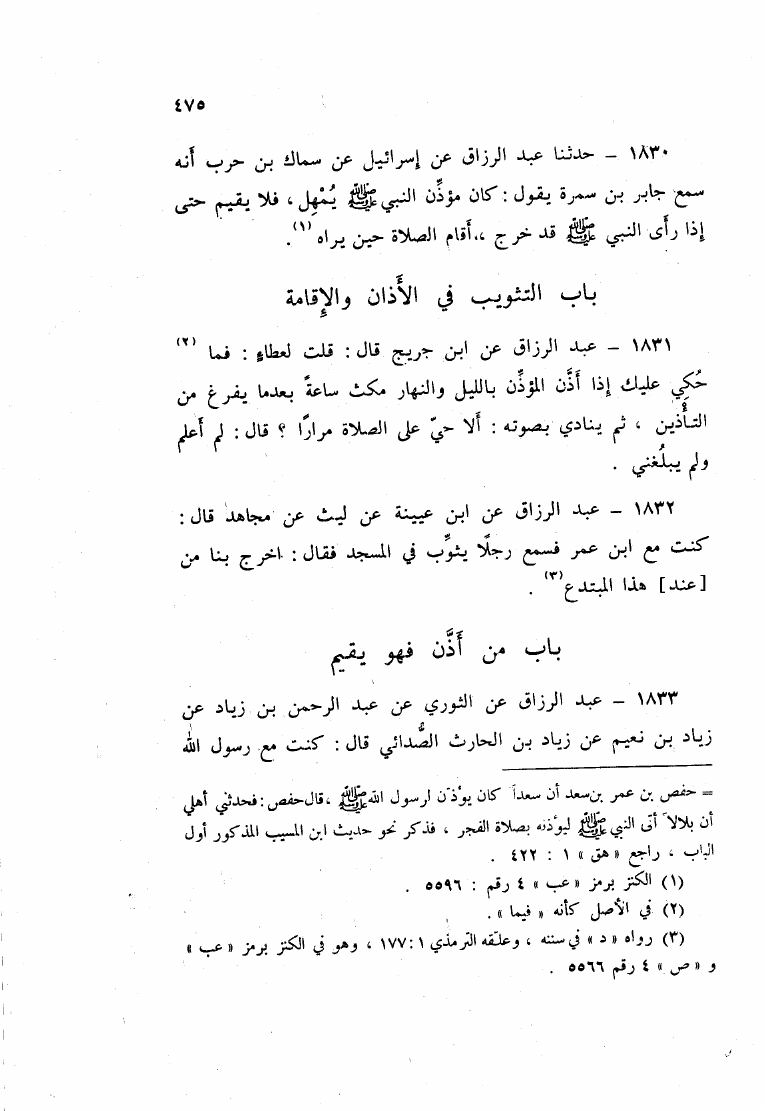 ٤٧٥
١٨٣٠ – حدثنا عبد الرزاق عن إسرائيل عن سماك بن حرب أنه
سمع جابر بن سمرة يقول : كان مؤذِّن النبي ﷺ يُمْهِل ، فلا يقيم حتى
إذا رأى النبي ﷺ قد خرج ،.أقام الصلاة حين يراه (١).
باب التثويب في الأَذان والإِقامة
١٨٣١ – عبد الرزاق عن ابن جريج قال : قلت لعطاءٍ : فما (٢)
حُكِي عليك إذا أَذَّن المؤذِّن بالليل والنهار مكث ساعةً بعدما يفرغ من
التأْذين ، ثم ينادي بصوته : أَلا حيّ على الصلاة مرارًا ؟ قال : لم أَعلم
ولم يبلُغني .
١٨٣٢ – عبد الرزاق عن ابن عيينة عن ليث عن مجاهد قال :
كنت مع ابن عمر فسمع رجلًا يثوِّب في المسجد فقال : اخرج بنا من
[عند] هذا المبتدع (٣) .
باب من أَذَّن فهو يقيم
١٨٣٣ – عبد الرزاق عن الثوري عن عبد الرحمن بن زياد عن
زياد بن نعيم عن زياد بن الحارث الصُّدائي قال : كنت مع رسول الله
= حفص بن عمر بن سعد أن سعداً كان يؤذن لرسول الله ﷺ ، قال حفص : فحدثني أهلي
أن بلالاً أتى النبي ﷺ ليؤذنه بصلاة الفجر ، فذكر نحو حديث ابن المسيب المذكور أول
الباب ، راجع « هق » ١ : ٤٢٢ .
(١) الكنز برمز « عب » ٤ رقم : ٥٥٩٦ .
(٢) في الأصل كأنه « فيما » .
(٣) رواه « د » في سننه ، وعلّقه الترمذي ١ : ١٧٧ ، وهو في الكنز برمز « عب »
و « ص » ٤ رقم ٥٥٦٦ .